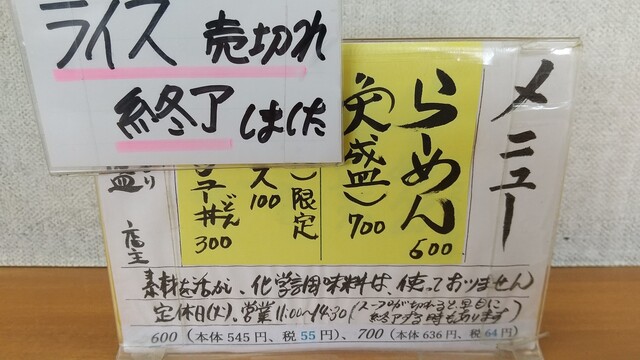 ライス 売切れ
終了 はした
メニュー
らーめん 600
(大盛) 700
限定
ス 100
ュー丼 300
どん
店主
素材を活かし、化学調味料は、使っておりません
定休日(火)、営業11:00~14:30(スープが切れると早目に
終了する時もあります)
600(本体 545 円、税 55 円)、700(本体 636 円、税 64 円)